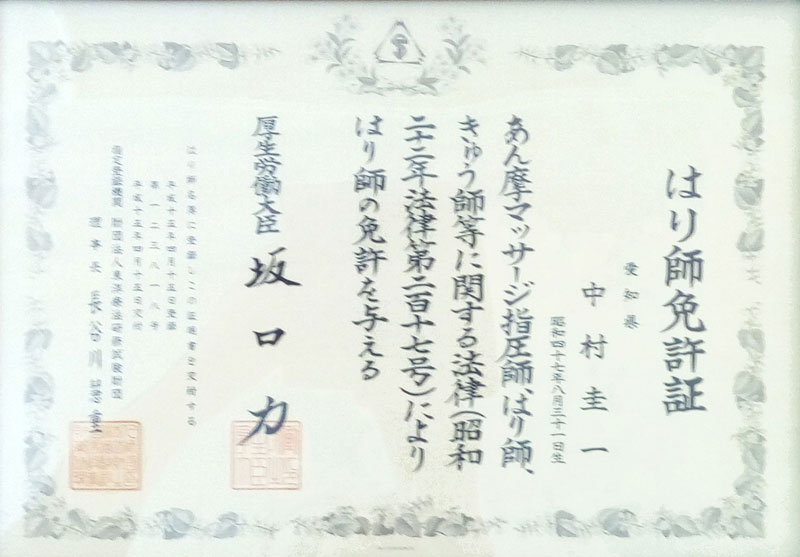 はり師免許証
愛知県
中村圭一
昭和四十七年八月三十一日生
あん摩マッサージ指圧師、はり師、
きゅう師等に関する法律(昭和
二十二年法律第二百十七号)により
はり師の免許を与える
厚生労働大臣 坂口力
はり師名簿に登録しこの証明書を交付する
平成十五年四月十五日登録
第一二三八一八号
平成十五年四月十五日交付
指定登録機関 財団法人東洋療法研修試験財団
理事長 長谷川